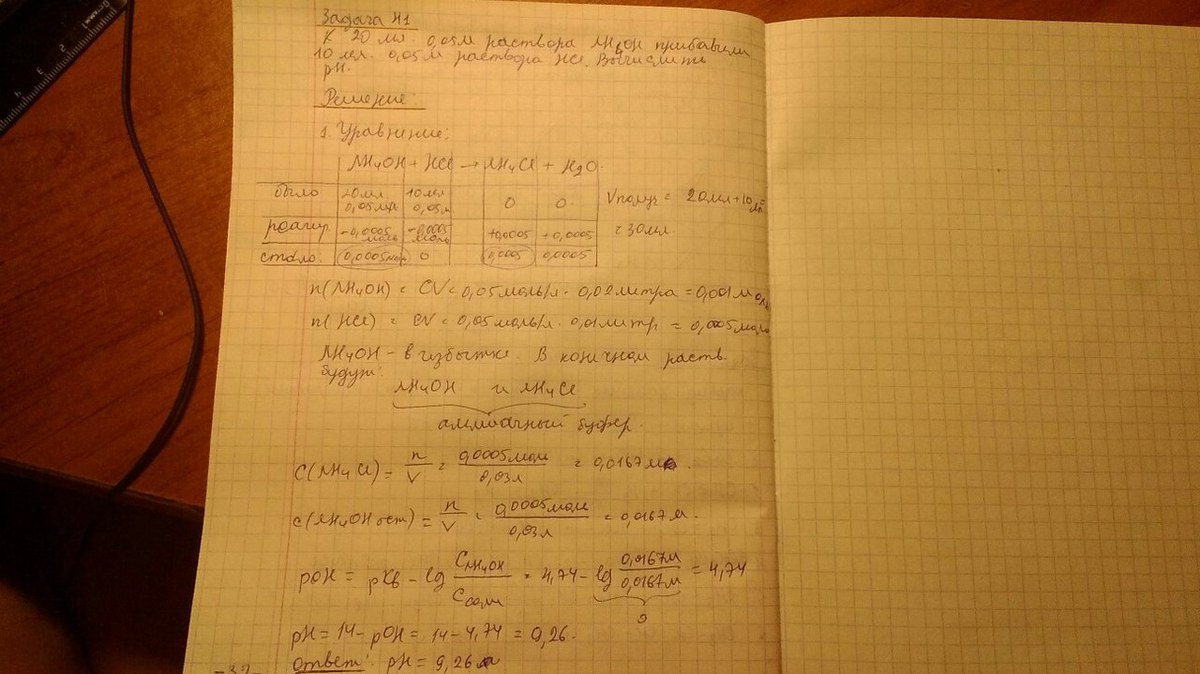 Задача №1
К 20 мл. 0,05М раствора NH4OH прибавили
10 мл. 0,05 М раствора HCl. Вычислить
pH.
Решение:
1. Уравнение:
NH4OH + HCl → NH4Cl + H2O.
было 20мл 0,05М 10мл 0,05М 0 0.
реагир -0,0005 моль -0,0005 моль +0,0005 +0,0005
стало: 0,0005мол 0 0,0005 0,0005
Vполуч = 20мл+10мл=
=30мл
n(NH4OH) = CV=0,05моль/л · 0,02литра =0,001моль
n(HCl) = CV=0,05моль/л · 0,01литр = 0,0005моль
NH4OH - в избытке. В конечном раств.
будут:
NH4OH и NH4Cl
аммиачный буфер.
C(NH4Cl) = n/V = 0,0005моль/0,03л = 0,0167М.
C(NH4OH ост) = n/V = 0,0005моль/0,03л = 0,0167М.
pOH = pKв - lg CNH4OH/Cсоли = 4,74 - lg 0,0167М/0,0167М = 4,74
0
pH = 14 - pOH = 14 - 4,74 = 9,26.
Ответ: pH = 9,26
-32-